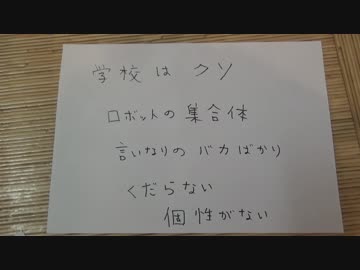 学校は クソ
ロボットの 集合体
言いなりの バカばかり
くだらない
個性がない